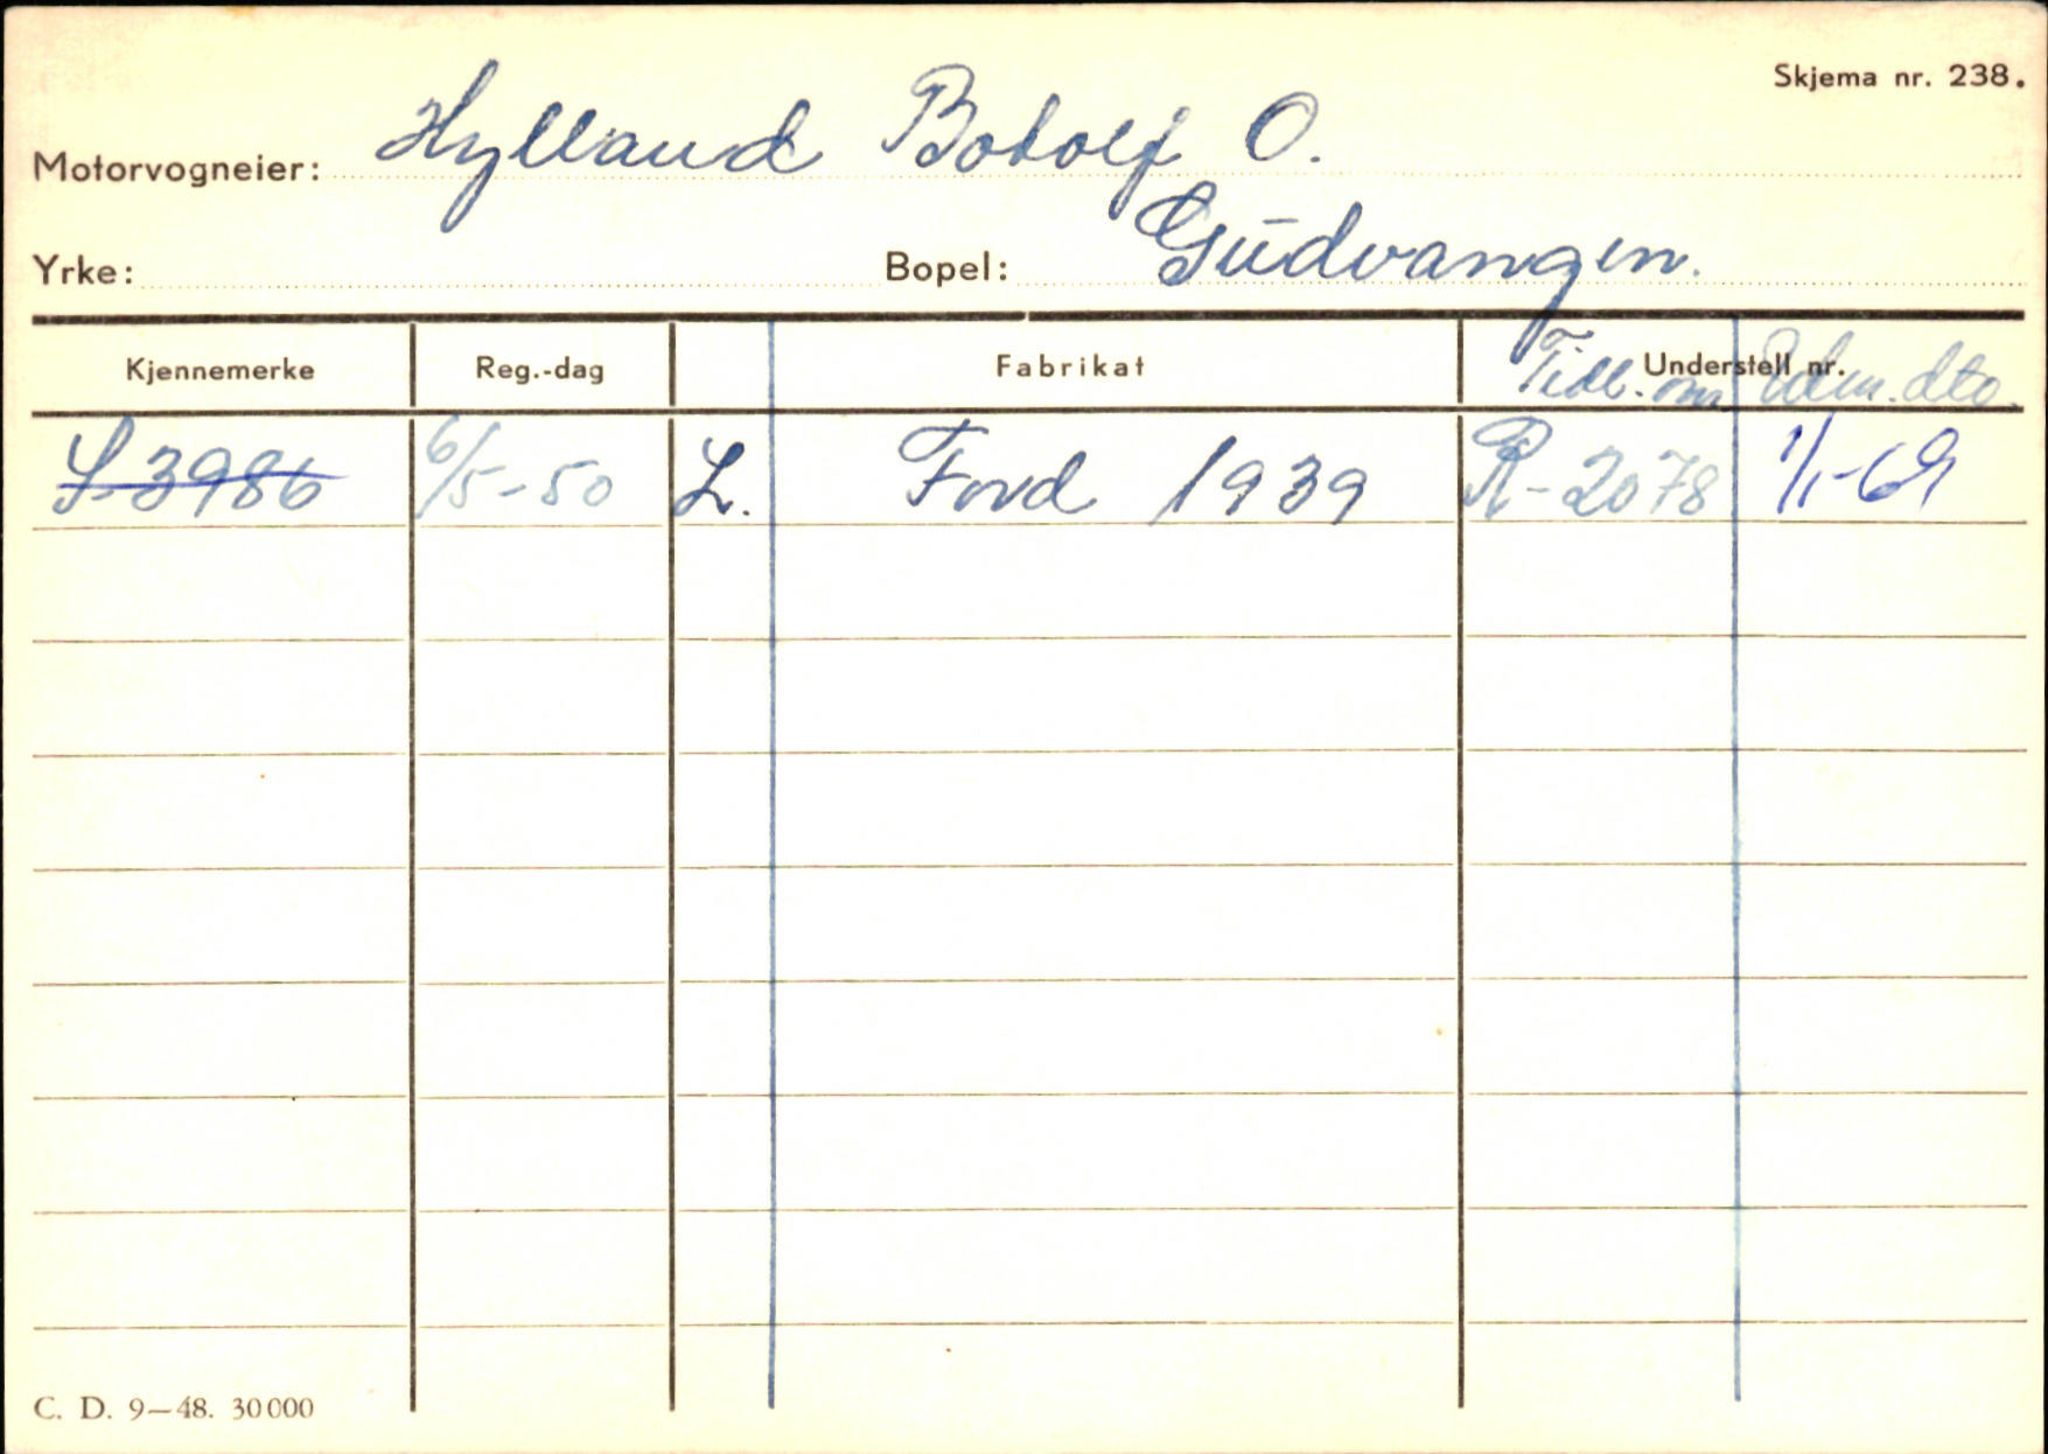 Skjema nr. 238.
Motorvogneier: Hylland Botolf O.
Yrke: Bopel: Gudvangen.
Kjennemerke Reg.-dag Fabrikat Understell nr. Tidl. om dto.
S-3986 6/5-50 L. Ford 1939 R-2078 1/1-69
C. D. 9—48. 30000